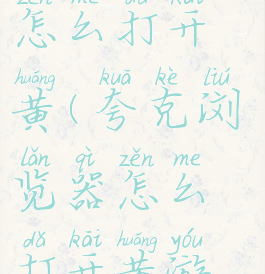 zěn me dǎ kāi
怎么打开
huáng kuā kè liú
黄(夸克浏
lǎn qì zěn me
览器怎么
dǎ kāi huáng yóu
打开黄游